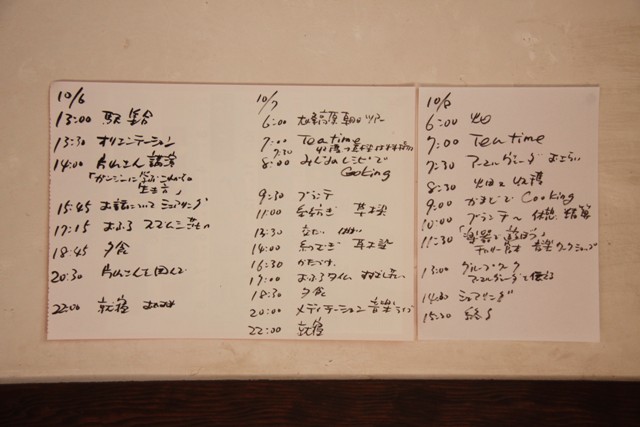 10/6
13:00 駅集合
13:30 オリエンテーション
14:00 片山さん 講演
「ガンジーに学ぶこれからの
生き方」
15:45 お話について シェアリング
17:15 おふろ
18:45 夕食
20:30 片山さんを囲んで
22:00 就寝
10/7
6:00
7:00 Tea time
7:30 収穫
8:00 みんなのレシピで
Cooking
9:30 ブランチ
11:00 糸つむぎ 草木染
13:30
14:00 糸つむぎ 草木染
16:30 かたづけ
17:00 おふろタイム
18:30 夕食
20:00 メディテーション 音楽ライブ
22:00 就寝
10/8
6:00
7:00 Tea time
7:30 アースガーデン
8:30 畑 収穫
9:00 かまどで Cooking
10:00 ブランチ〜 休憩
11:30 「楽器で
音楽ワークショップ
13:00 グループワーク
アースガーデンで
14:30 シェアリング
15:30 終了